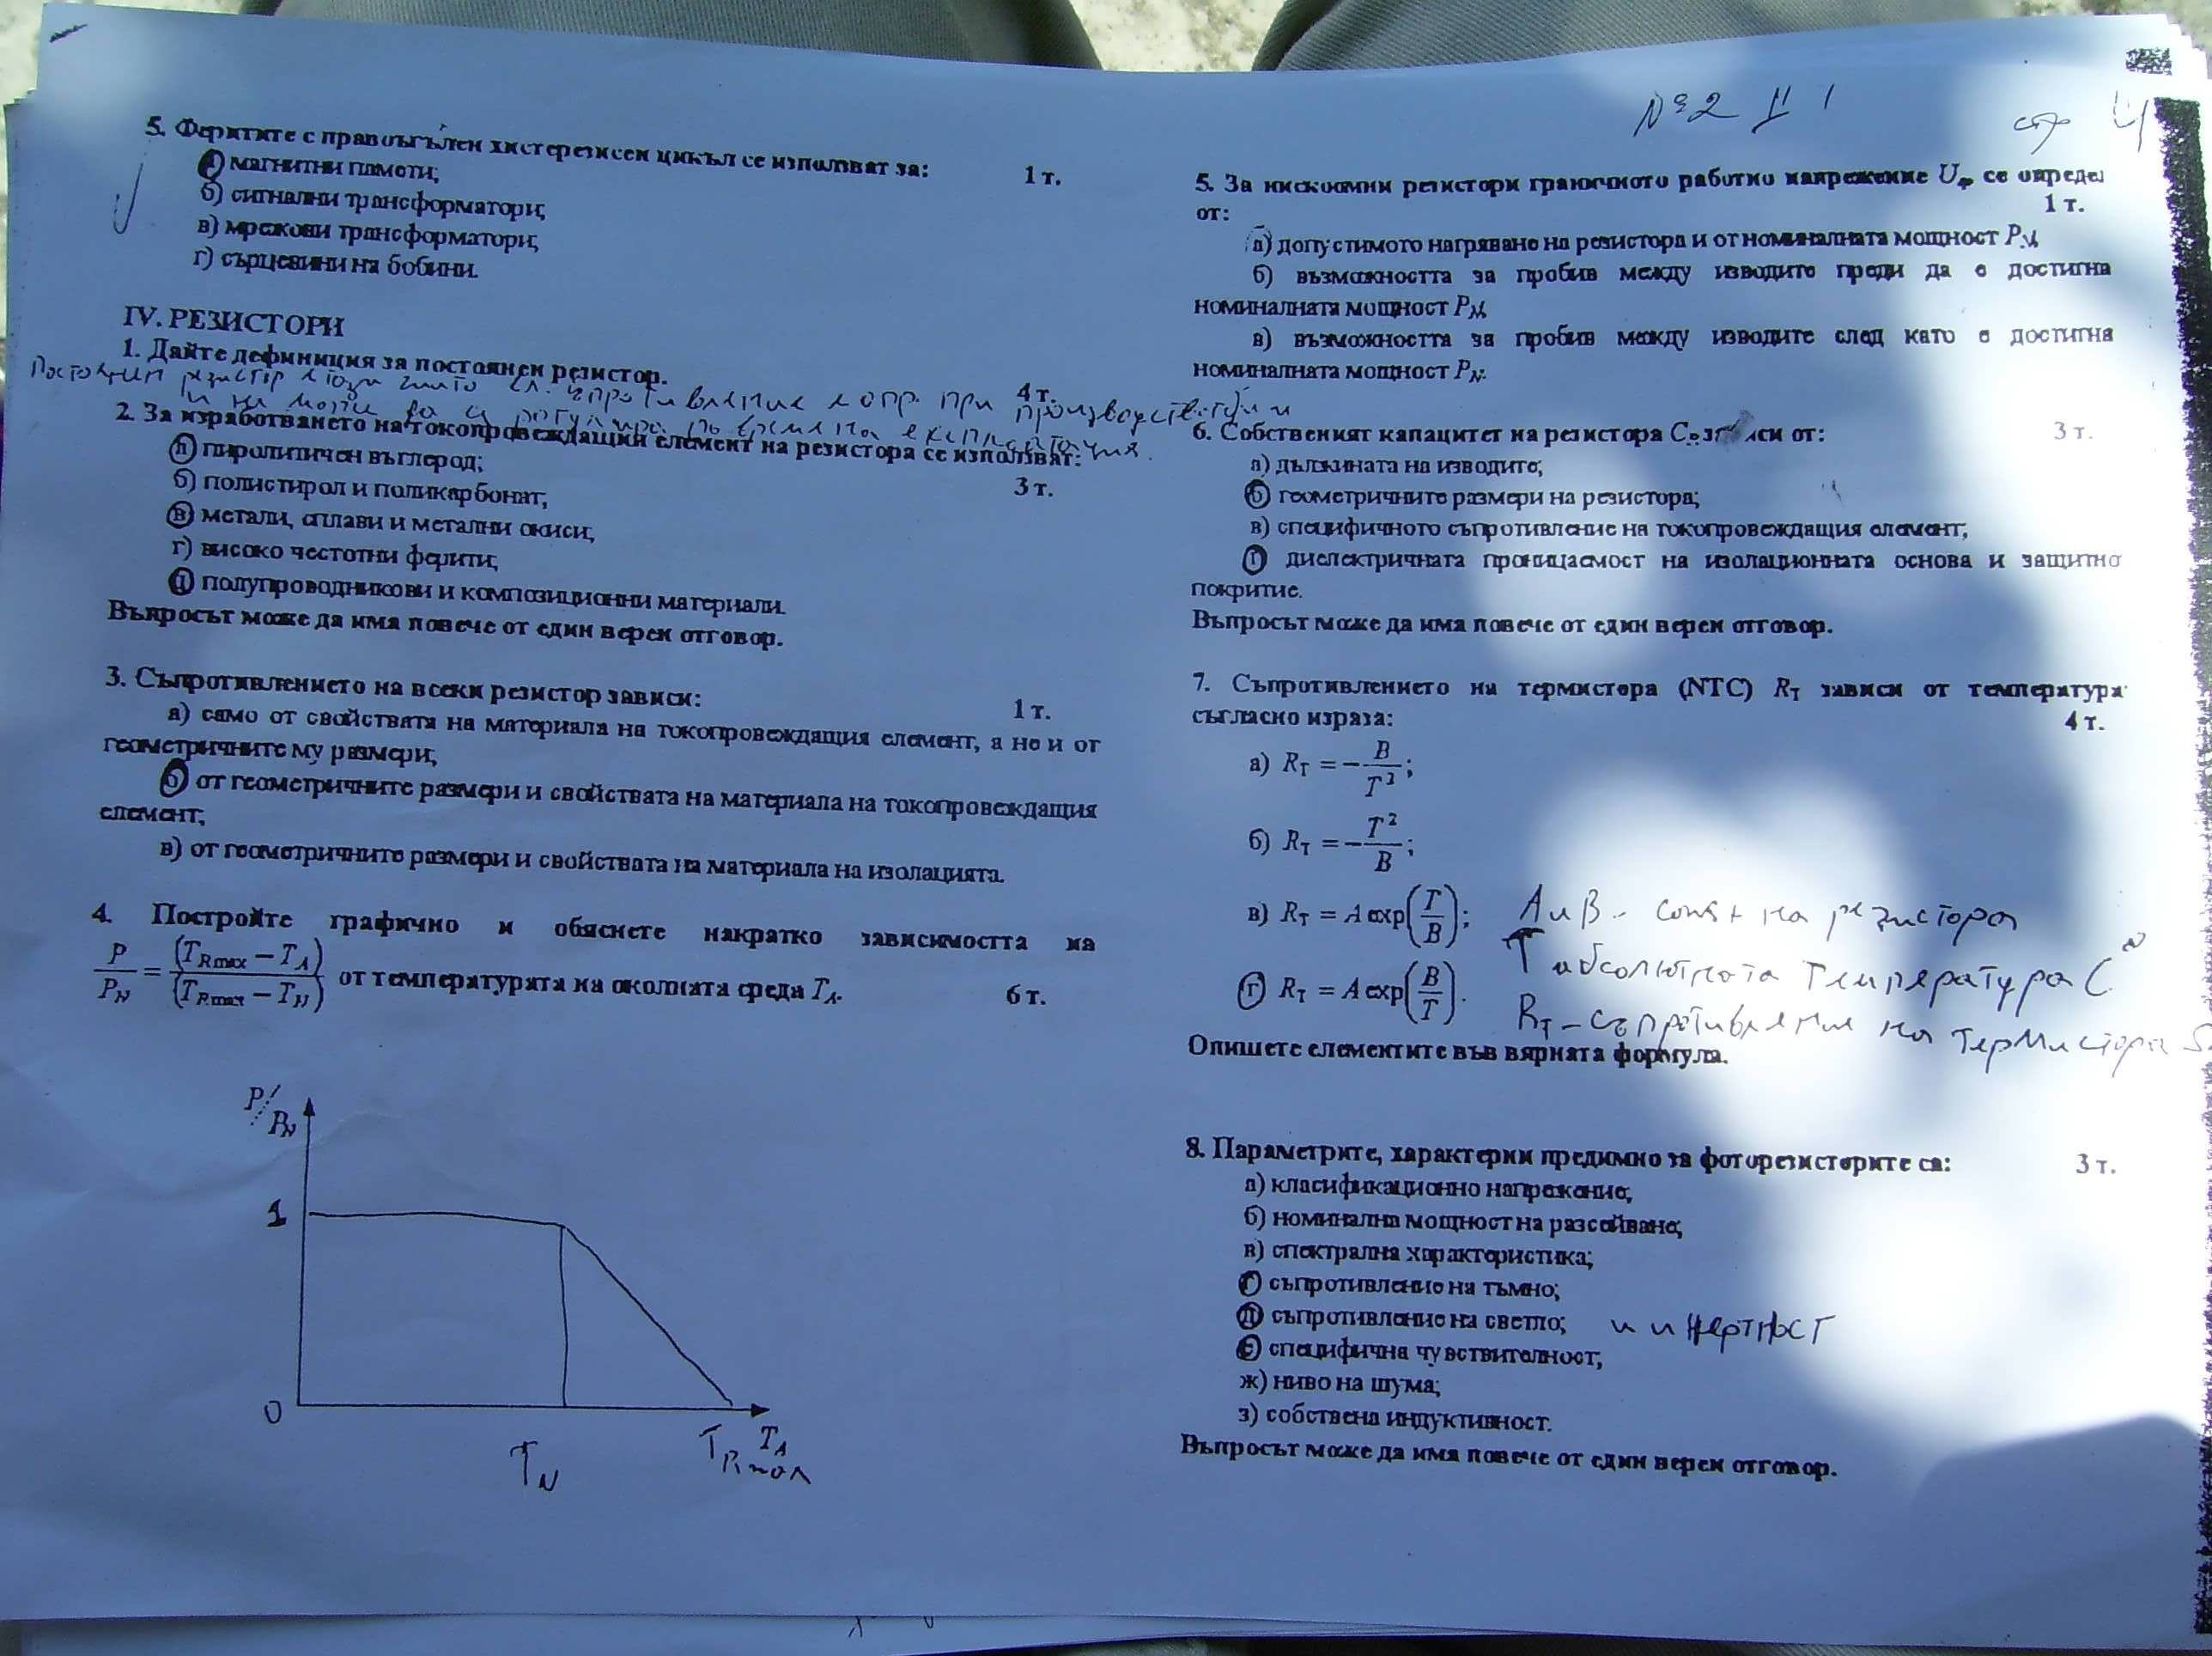 №2 II 1
стр 4
5. Феритите с правоъгълен хистерезисен цикъл се използват за: 1 т.
а) магнитни памети;
б) сигнални трансформатори;
в) мрежови трансформатори;
г) сърцевини на бобини.
IV. РЕЗИСТОРИ
1. Дайте дефиниция за постоянен резистор. 4 т.
Постоянен резистор е този чието ел. съпротивление е опр. при производството и
и не може да се регулира по време на експлоатация.
2. За изработването на токопровеждащия елемент на резистора се използват: 3 т.
а) пиролитичен въглерод;
б) полистирол и поликарбонат;
в) метали, сплави и метални окиси;
г) високо честотни ферити;
д) полупроводникови и композиционни материали.
Въпросът може да има повече от един верен отговор.
3. Съпротивлението на всеки резистор зависи: 1 т.
а) само от свойствата на материала на токопровеждащия елемент, а не и от
геометричните му размери;
б) от геометричните размери и свойствата на материала на токопровеждащия
елемент;
в) от геометричните размери и свойствата на материала на изолацията.
4. Постройте графично и обяснете накратко зависимостта на
P/P_N = (T_Rmax − T_A)/(T_Rmax − T_N) от температурата на околната среда T_A. 6 т.
P/P_N
1
0
T_N
T_Rmax T_A
5. За нискоомни резистори граничното работно напрежение U_гр се определ
от: 1 т.
а) допустимото нагряване на резистора и от номиналната мощност P_N;
б) възможността за пробив между изводите преди да е достигна
номиналната мощност P_N;
в) възможността за пробив между изводите след като е достигна
номиналната мощност P_N.
6. Собственият капацитет на резистора C_R зависи от: 3 т.
а) дължината на изводите;
б) геометричните размери на резистора;
в) специфичното съпротивление на токопровеждащия елемент;
г) диелектричната проницаемост на изолационната основа и защитно
покритие.
Въпросът може да има повече от един верен отговор.
7. Съпротивлението на термистора (NTC) R_T зависи от температура
съгласно израза: 4 т.
а) R_T = −B/T²;
б) R_T = −T²/B;
в) R_T = A exp(T/B); A и B - const на резистора
T абсолютната температура C°
г) R_T = A exp(B/T). R_T - съпротивление на термистора
Опишете елементите във вярната формула.
8. Параметрите, характерни предимно за фоторезисторите са: 3 т.
а) класификационно напрежение;
б) номинална мощност на разсейване;
в) спектрална характеристика;
г) съпротивление на тъмно;
д) съпротивление на светло; и инертност
е) специфична чувствителност;
ж) ниво на шума;
з) собствена индуктивност.
Въпросът може да има повече от един верен отговор.